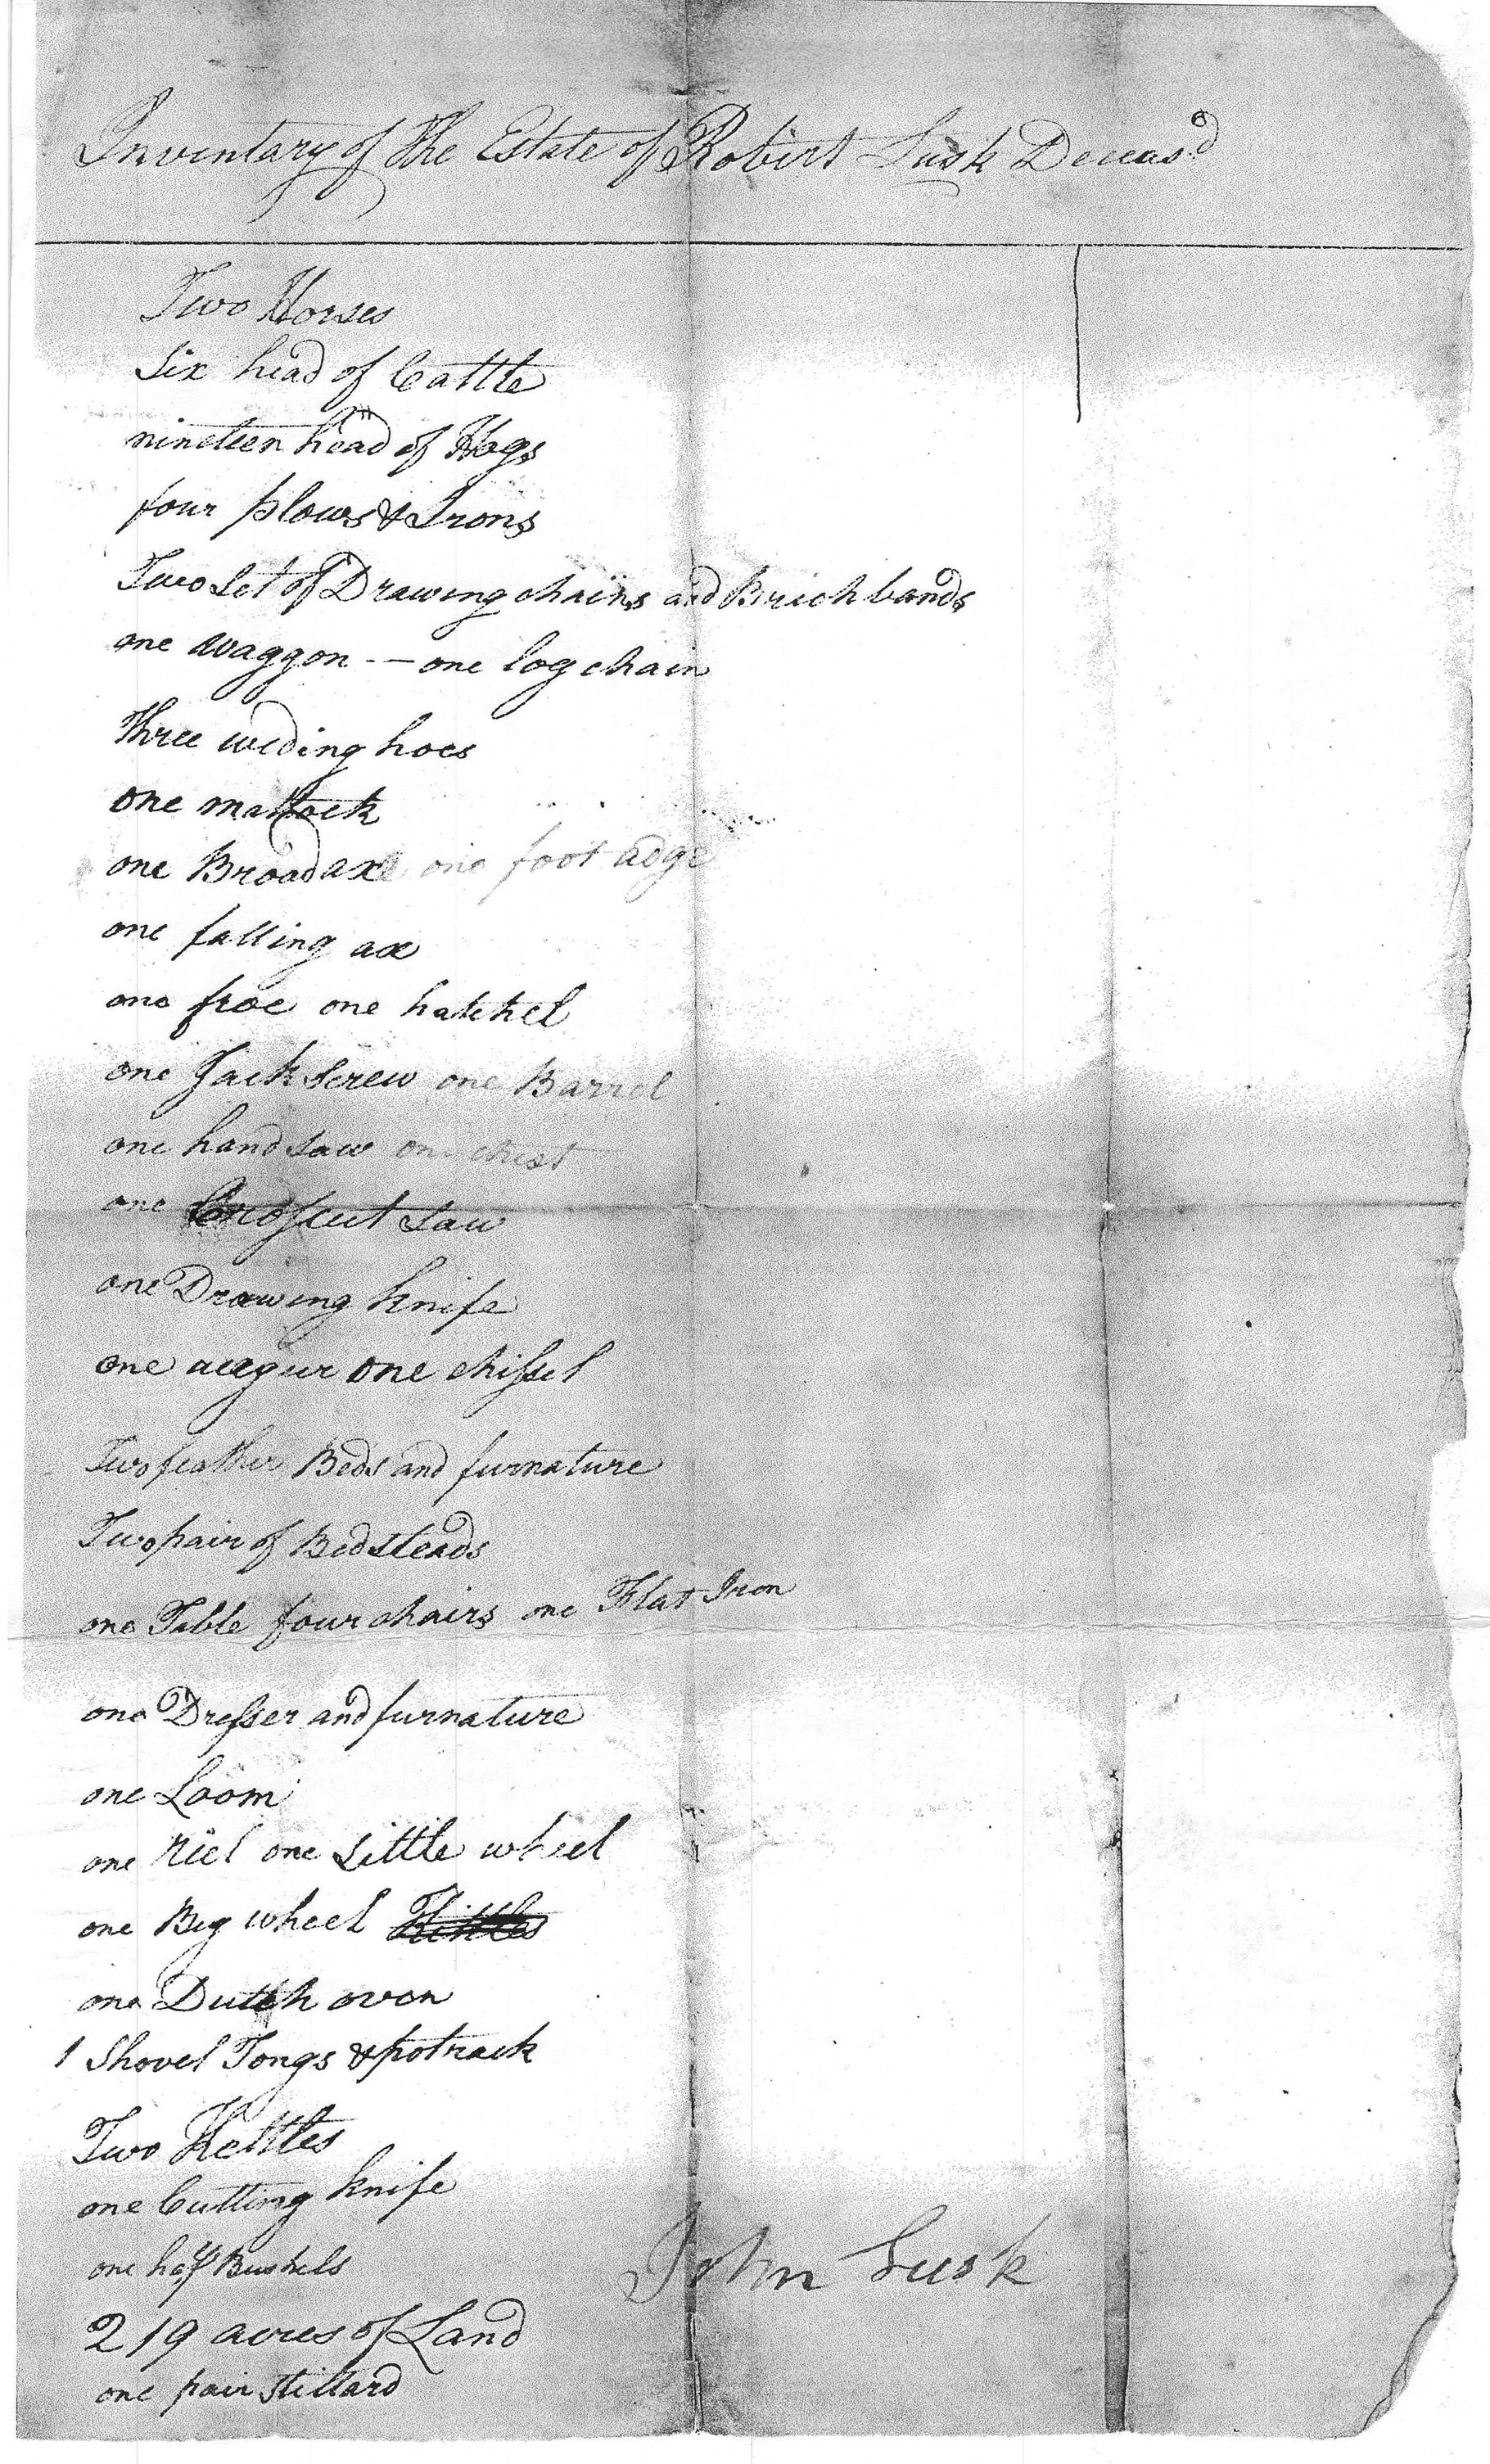 Inventary of the Estate of Robert Lusk Deceasd
Two Horses
Six head of Cattle
nineteen head of Hogs
four plows & Irons
Two Set of Drawing chains and Brichbands
one waggon -- one log chain
Three weding hoes
one mattock
one Broad axe one foot adge
one falling ax
one froe one hatchel
one Jack Screw one Barrel
one hand saw one chest
one Crosscut saw
one Drawing knife
one augur one chissel
Two feather Beds and furnature
Two pair of Bedsteads
one Table four chairs one Flat Iron
one Dresser and furnature
one Loom
one riel one Little wheel
one Big wheel
one Dutch oven
1 Shovel Tongs & potrack
Two Kettles
one Cutting knife
one half Bushels
John Lusk
219 acres of Land
one pair Stillard